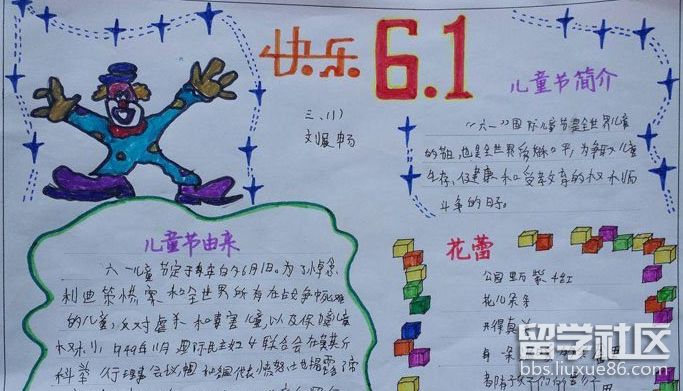 快乐 6.1
三、(1)
刘晨畅
儿童节简介
"六一"国际儿童节是全世界儿童
的节日,也是全世界 为争取儿童
生存、健康和受教育的权利而
斗争的日子。
儿童节由来
六一儿童节定于每年的6月1日。为了悼念
利迪策惨案和全世界所有在战争中死难
的儿童,反对虐杀和毒害儿童,以及保障儿童
权利,1949年11月国际民主妇女联合会在莫斯
科举行理事会议,
花蕾
公园里万紫千红
花儿朵朵
开得真
留学社区
bbs.liuxue86.com